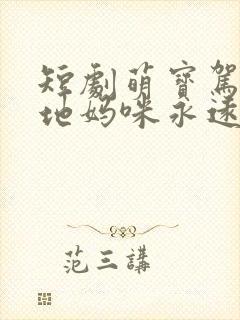 短劇萌寶駕
地媽咪永遠
范三講